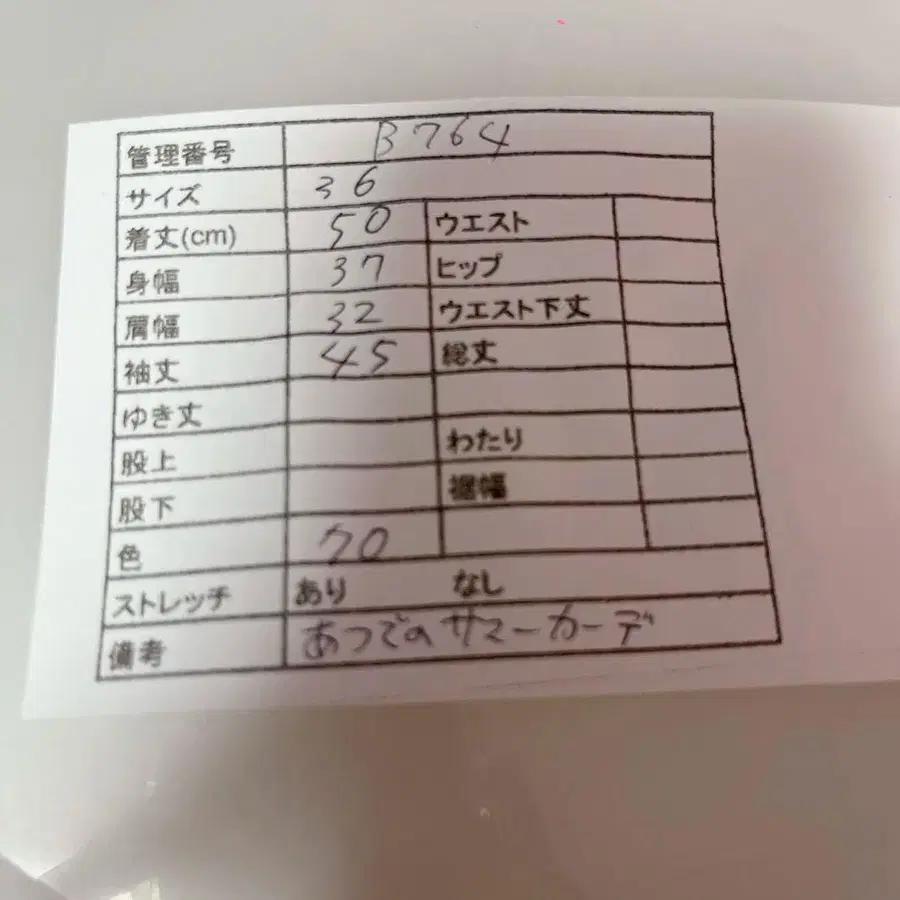 管理番号 B764
サイズ 36
着丈(cm) 50 ウエスト
身幅 37 ヒップ
肩幅 32 ウエスト下丈
袖丈 45 総丈
ゆき丈
股上 わたり
股下 裾幅
色 クロ
ストレッチ あり なし
備考 あつでのサマーカーデ